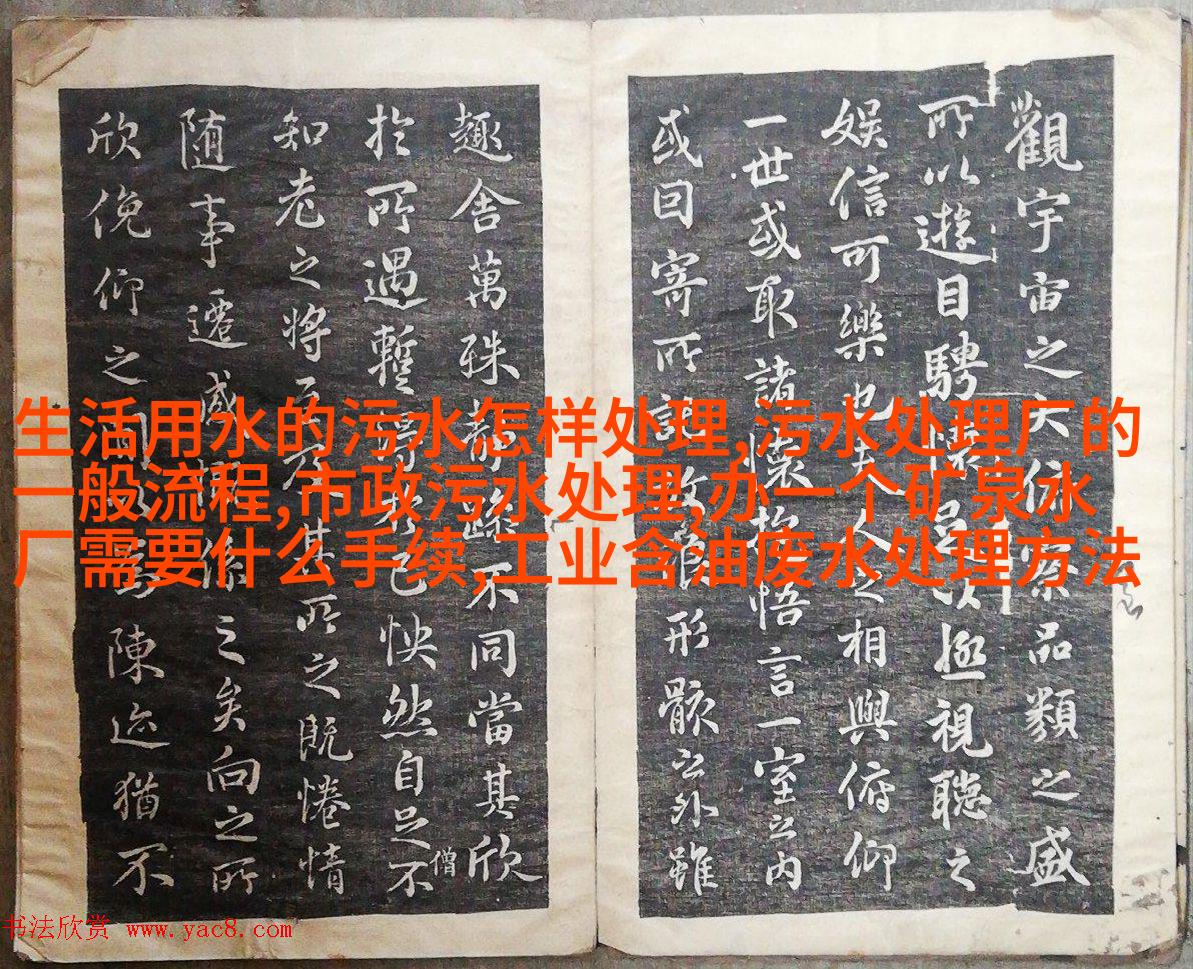 觀宇宙之大俯察品類之盛
所以遊目騁懷足以極視聽之
娛信可樂也夫人之相與俯仰
一世或取諸懷抱悟言一室之內
或因寄所託放浪形骸之外雖
趣舍萬殊靜躁不同當其欣
於所遇暫得於己怏然自足不
僧
知老之將至及其所之既惓情
隨事遷感慨係之矣向之所
欣俛仰之間以為陳迹猶不
生活用水的污水怎样处理,污水处理厂的
一般流程,市政污水处理,办一个矿泉水
厂需要什么手续,工业含油废水处理方法
书法欣赏 www.yac8.com